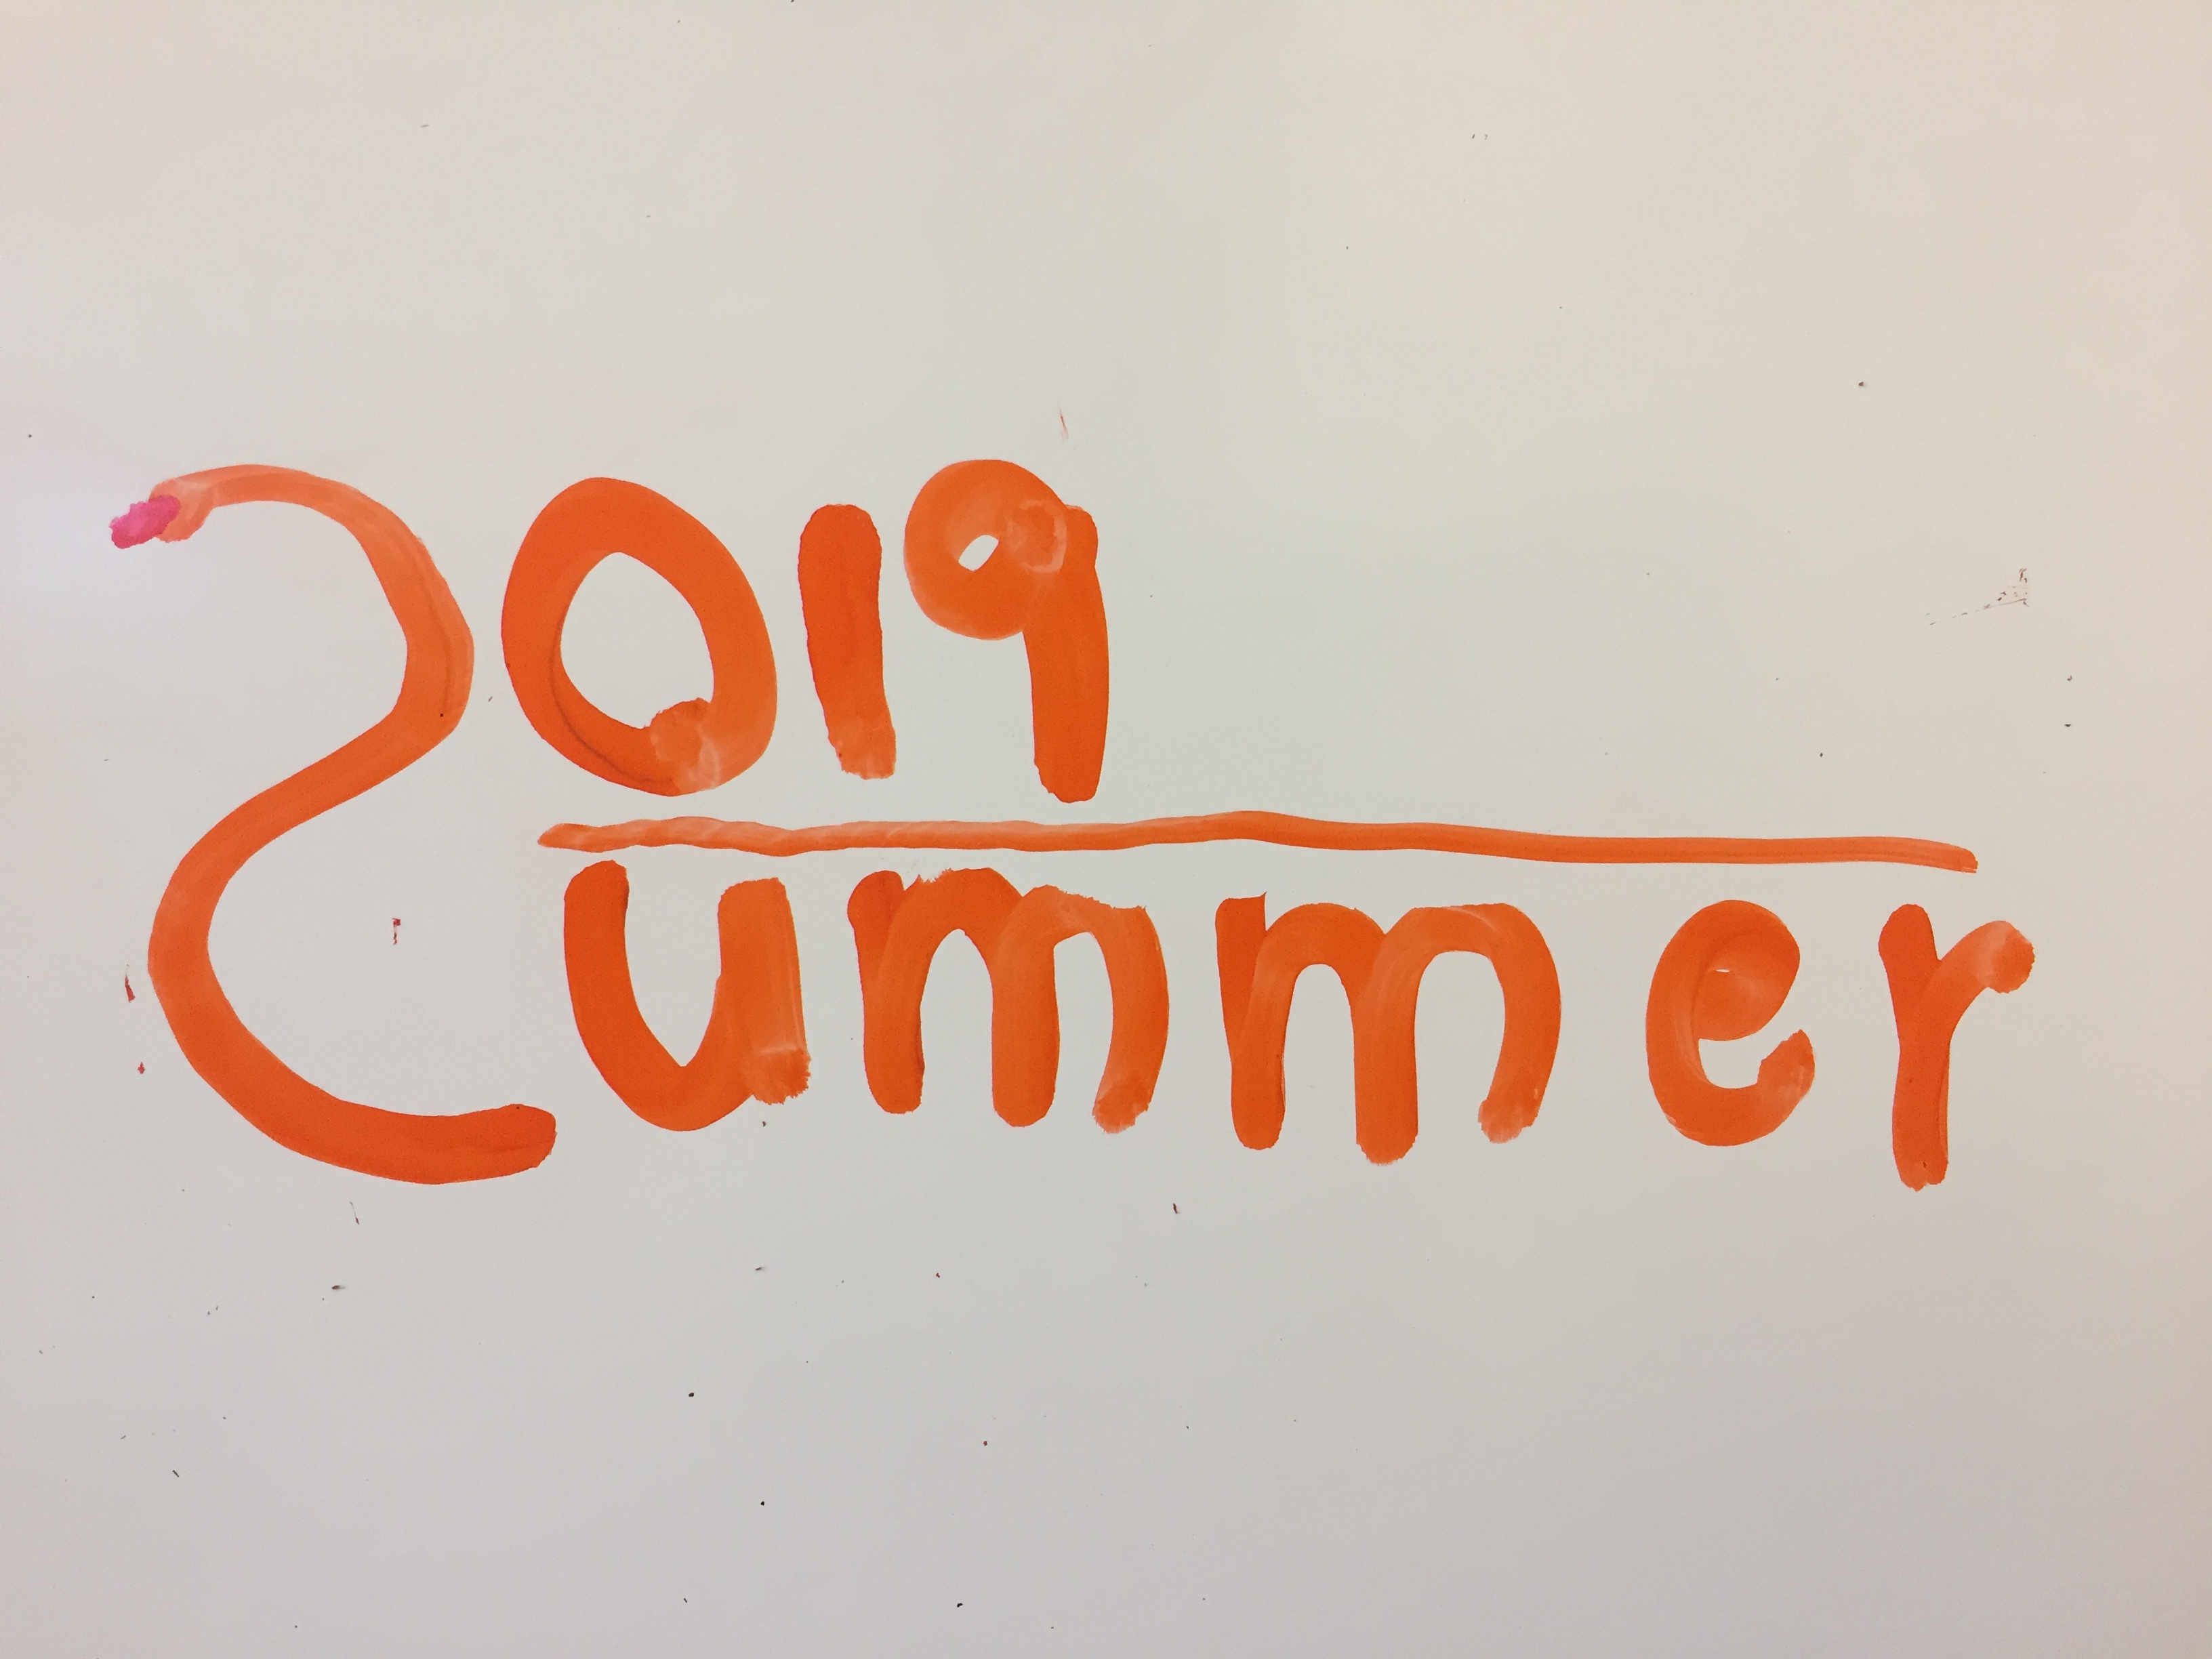 2019
Summer